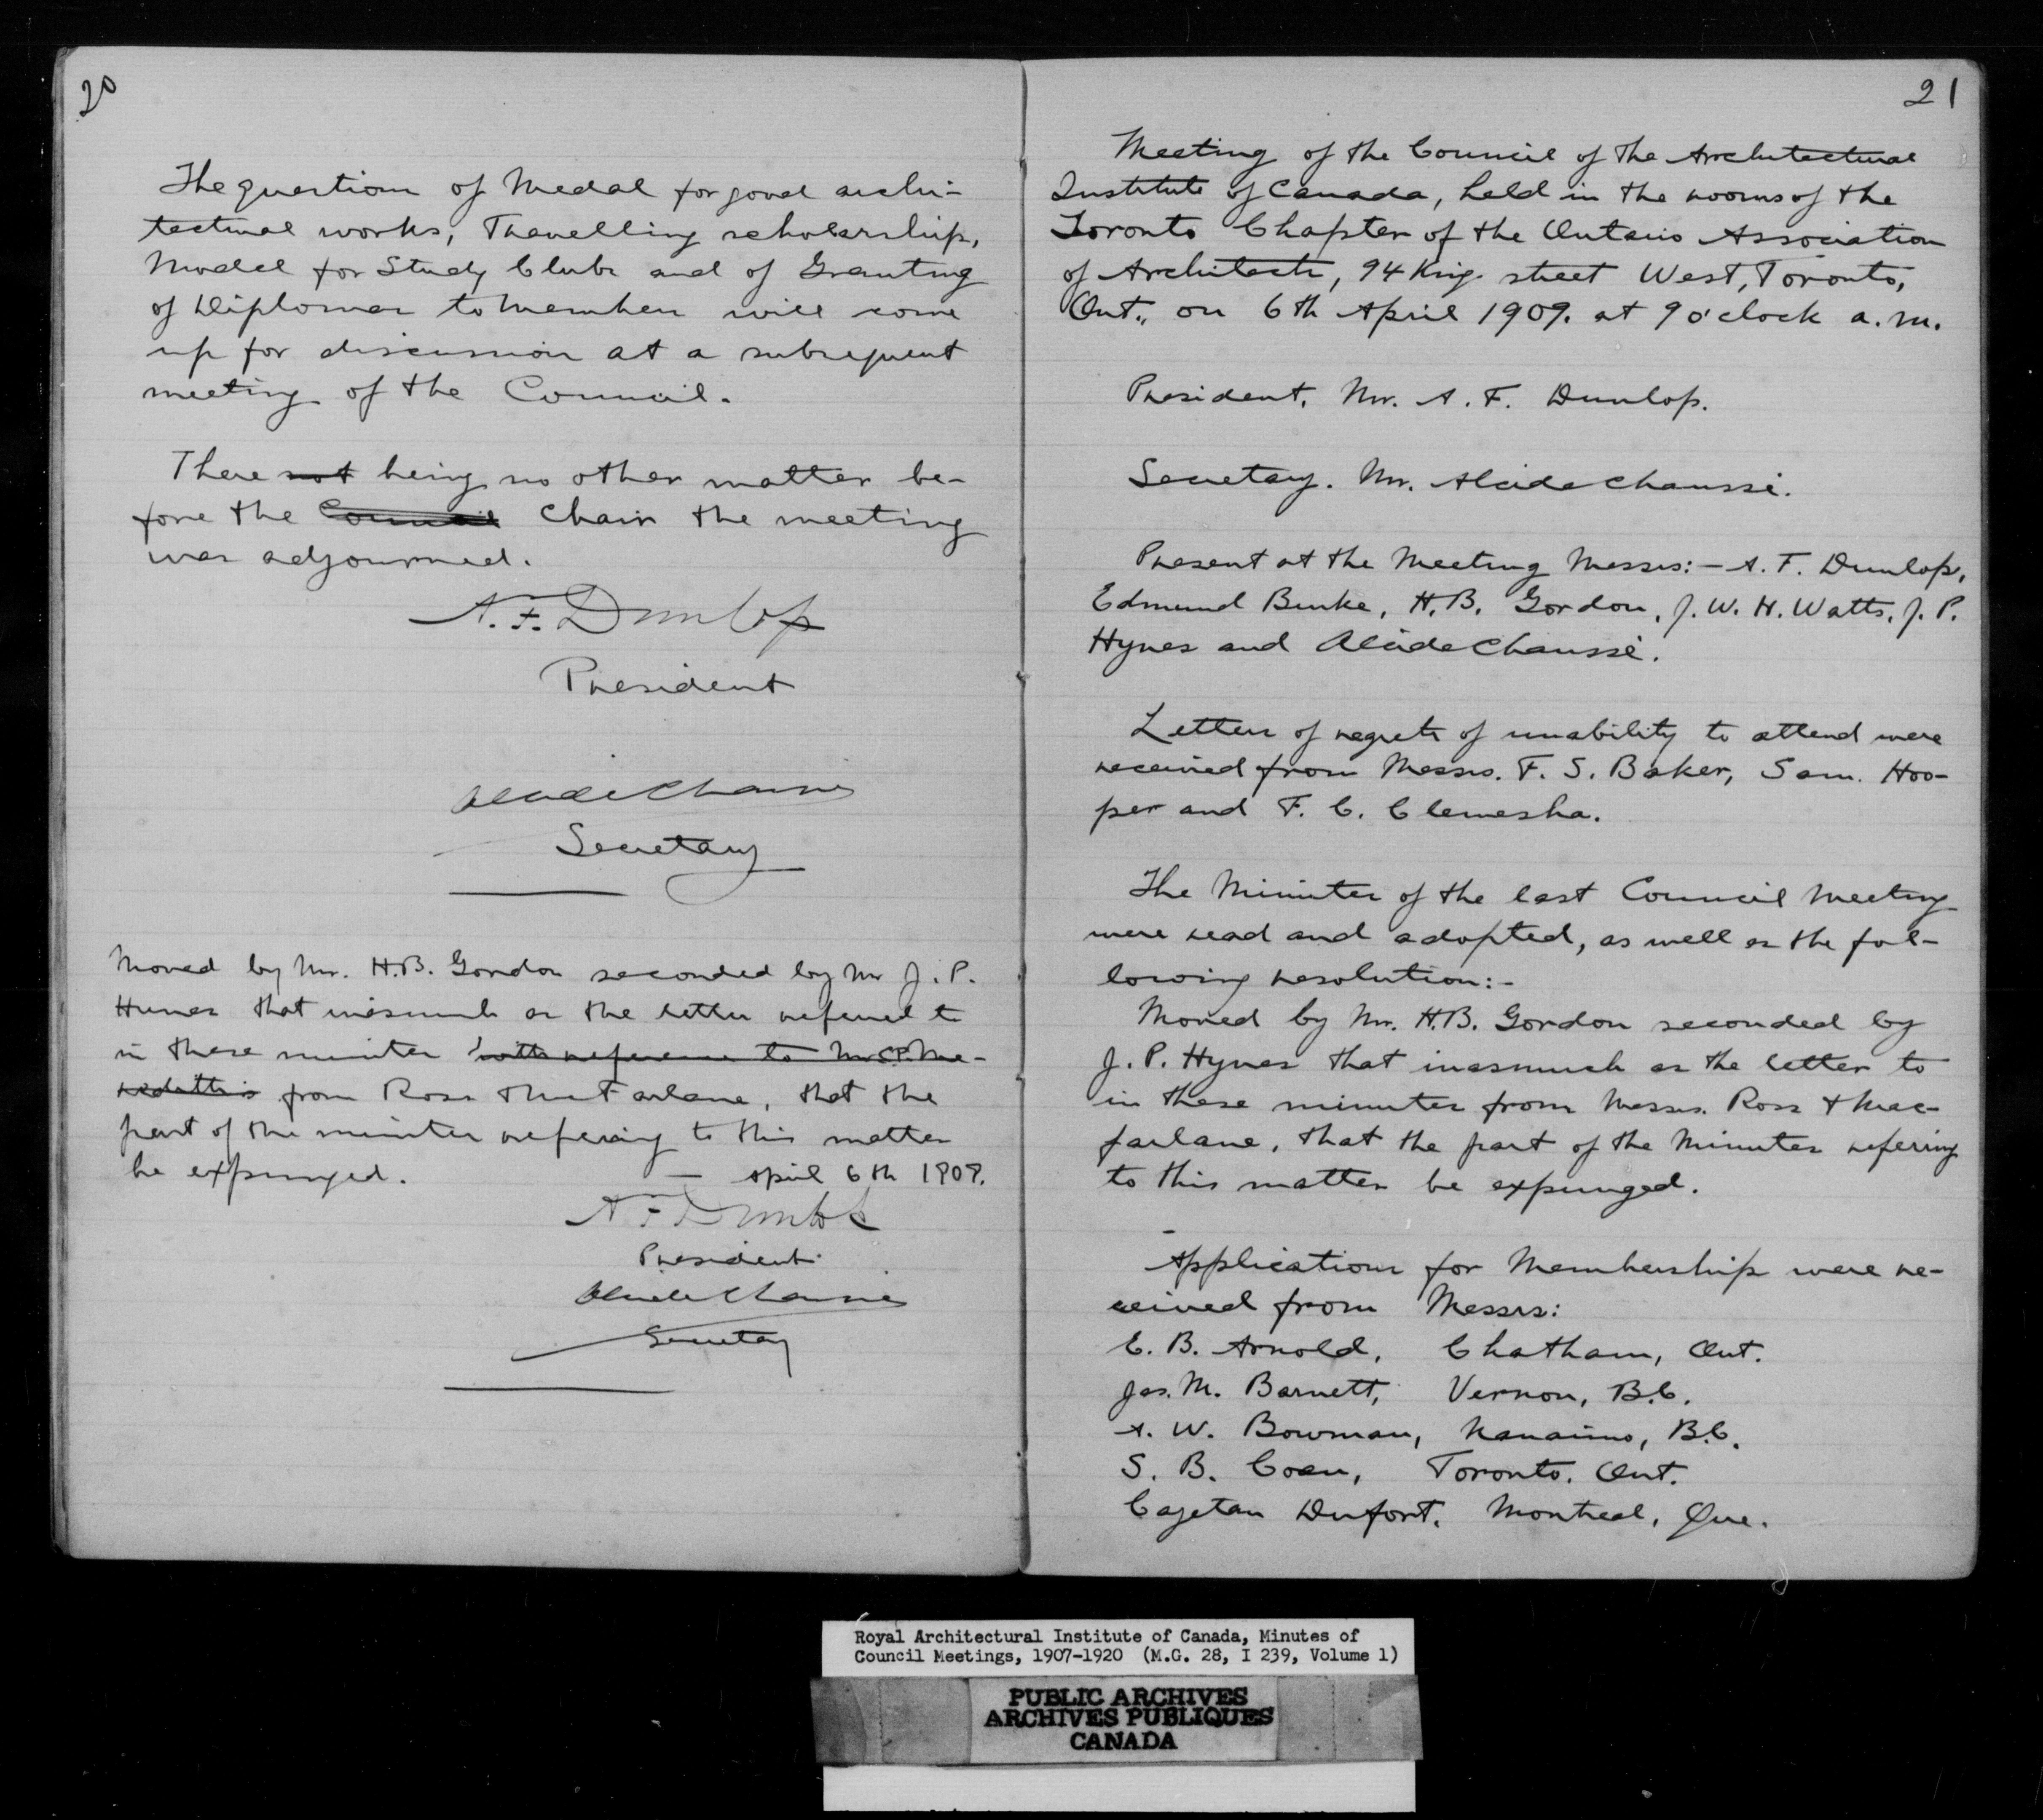 20
The question of Medal for good archi-
tectural works, Travelling scholarship,
Model for Study Clubs and of Granting
of Diplomas to members will come
up for discussion at a subsequent
meeting of the Council.
There not being no other matter be-
fore the Council Chair the meeting
was adjourned.
A. F. Dunlop
President
Alcide Chaussé
Secretary
Moved by Mr. H.B. Gordon seconded by Mr J. P.
Hynes that inasmuch as the letter referred to
in these minutes with reference to
from Ross & MacFarlane, that the
part of the minutes refering to this matter
be expunged. — April 6th 1909.
A F Dunlop
President
Alcide Chaussé
Secretary
21
Meeting of the Council of the Architectural
Institute of Canada, held in the rooms of the
Toronto Chapter of the Ontario Association
of Architects, 94 King street West, Toronto,
Ont., on 6th April 1909. at 9 o'clock a.m.
President, Mr. A. F. Dunlop.
Secretary. Mr. Alcide Chaussé.
Present at the Meeting Messrs:— A. F. Dunlop,
Edmund Burke, H.B. Gordon, J. W. H. Watts, J. P.
Hynes and Alcide Chaussé.
Letters of regrets of unability to attend were
received from Messrs. F. S. Baker, Sam. Hoo-
per and F. C. Clemesha.
The Minutes of the last Council Meeting
were read and adopted, as well as the fol-
lowing resolution:-
Moved by Mr. H.B. Gordon seconded by
J. P. Hynes that inasmuch as the letter to
in these minutes from Messrs. Ross & Mac-
farlane, that the part of the Minutes refering
to this matter be expunged.
Applications for Membership were re-
ceived from Messrs:
E. B. Arnold, Chatham, Ont.
Jas. M. Barnett, Vernon, B.C.
A. W. Bowman, Nanaimo, B.C.
S. B. Coon, Toronto. Ont.
Cajetan Dufort. Montreal, Que.
Royal Architectural Institute of Canada, Minutes of
Council Meetings, 1907-1920 (M.G. 28, I 239, Volume 1)
PUBLIC ARCHIVES
ARCHIVES PUBLIQUES
CANADA